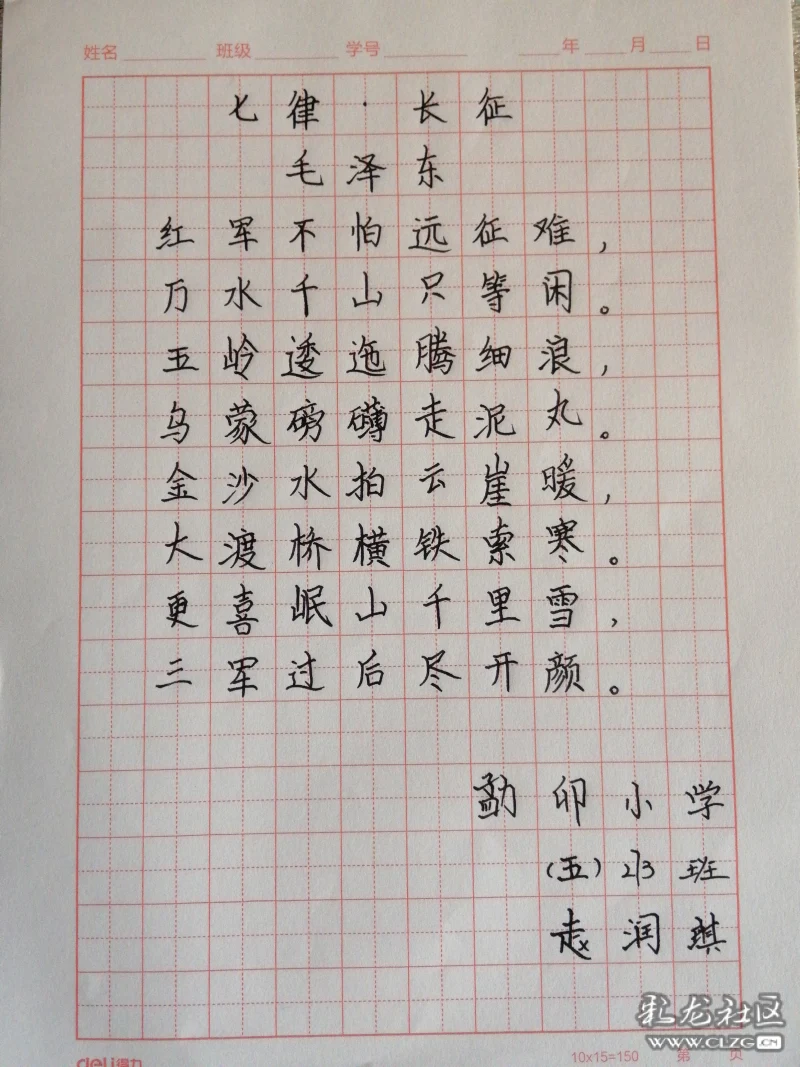 姓名 班级 学号 年 月 日
七律·长征
毛泽东
红军不怕远征难，
万水千山只等闲。
五岭逶迤腾细浪，
乌蒙磅礴走泥丸。
金沙水拍云崖暖，
大渡桥横铁索寒。
更喜岷山千里雪，
三军过后尽开颜。
勐卯小学
（五）213班
赵润琪
deli得力 10x15=150 第 页
彩龙社区
WWW.CLZG.CN